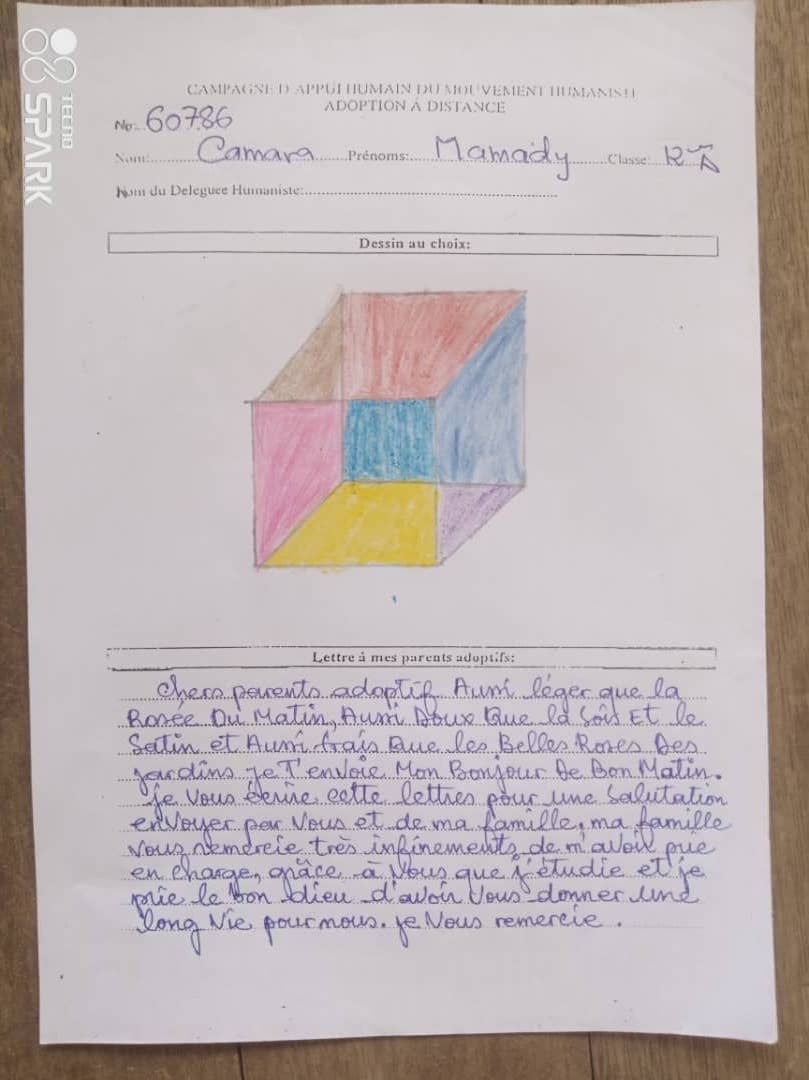 SPARK
TECNO
CAMPAGNE D'APPUI HUMAIN DU MOUVEMENT HUMANISTE
ADOPTION Á DISTANCE
No: 60786
Nom: Camara Prénoms: Mamady Classe:
Nom du Deleguee Humaniste:
Dessin au choix:
Lettre á mes parents adoptifs:
Chers parents adoptif Aussi léger que la
Rosée Du Matin, Aussi Doux Que la Sois Et le
Satin et Aussi frais Que les Belles Roses Des
jardins je T'envoie Mon Bonjour De Bon Matin.
je Vous écrire cette lettres pour une Salutation
envoyer par Vous et de ma famille, ma famille
Vous remercie très infinements de m'avoir prie
en charge, grâce à Vous que j'étudie et je
prie le bon dieu d'avoir Vous donner une
long Vie pour nous. je Vous remercie.